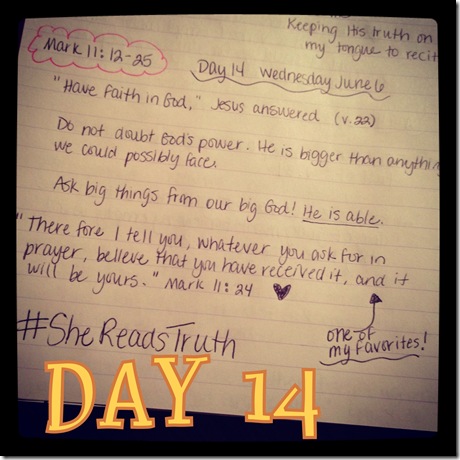 Keeping His truth on
my tongue to recit
Mark 11:12-25
Day 14 Wednesday June 6
"Have faith in God," Jesus answered (v.22)
Do not doubt God's power. He is bigger than anythin
we could possibly face.
Ask big things from our big God! He is able.
"There fore I tell you, whatever you ask for in
prayer, believe that you have received it, and it
will be yours." Mark 11:24
one of
my favorites!
#SheReadsTruth
DAY 14